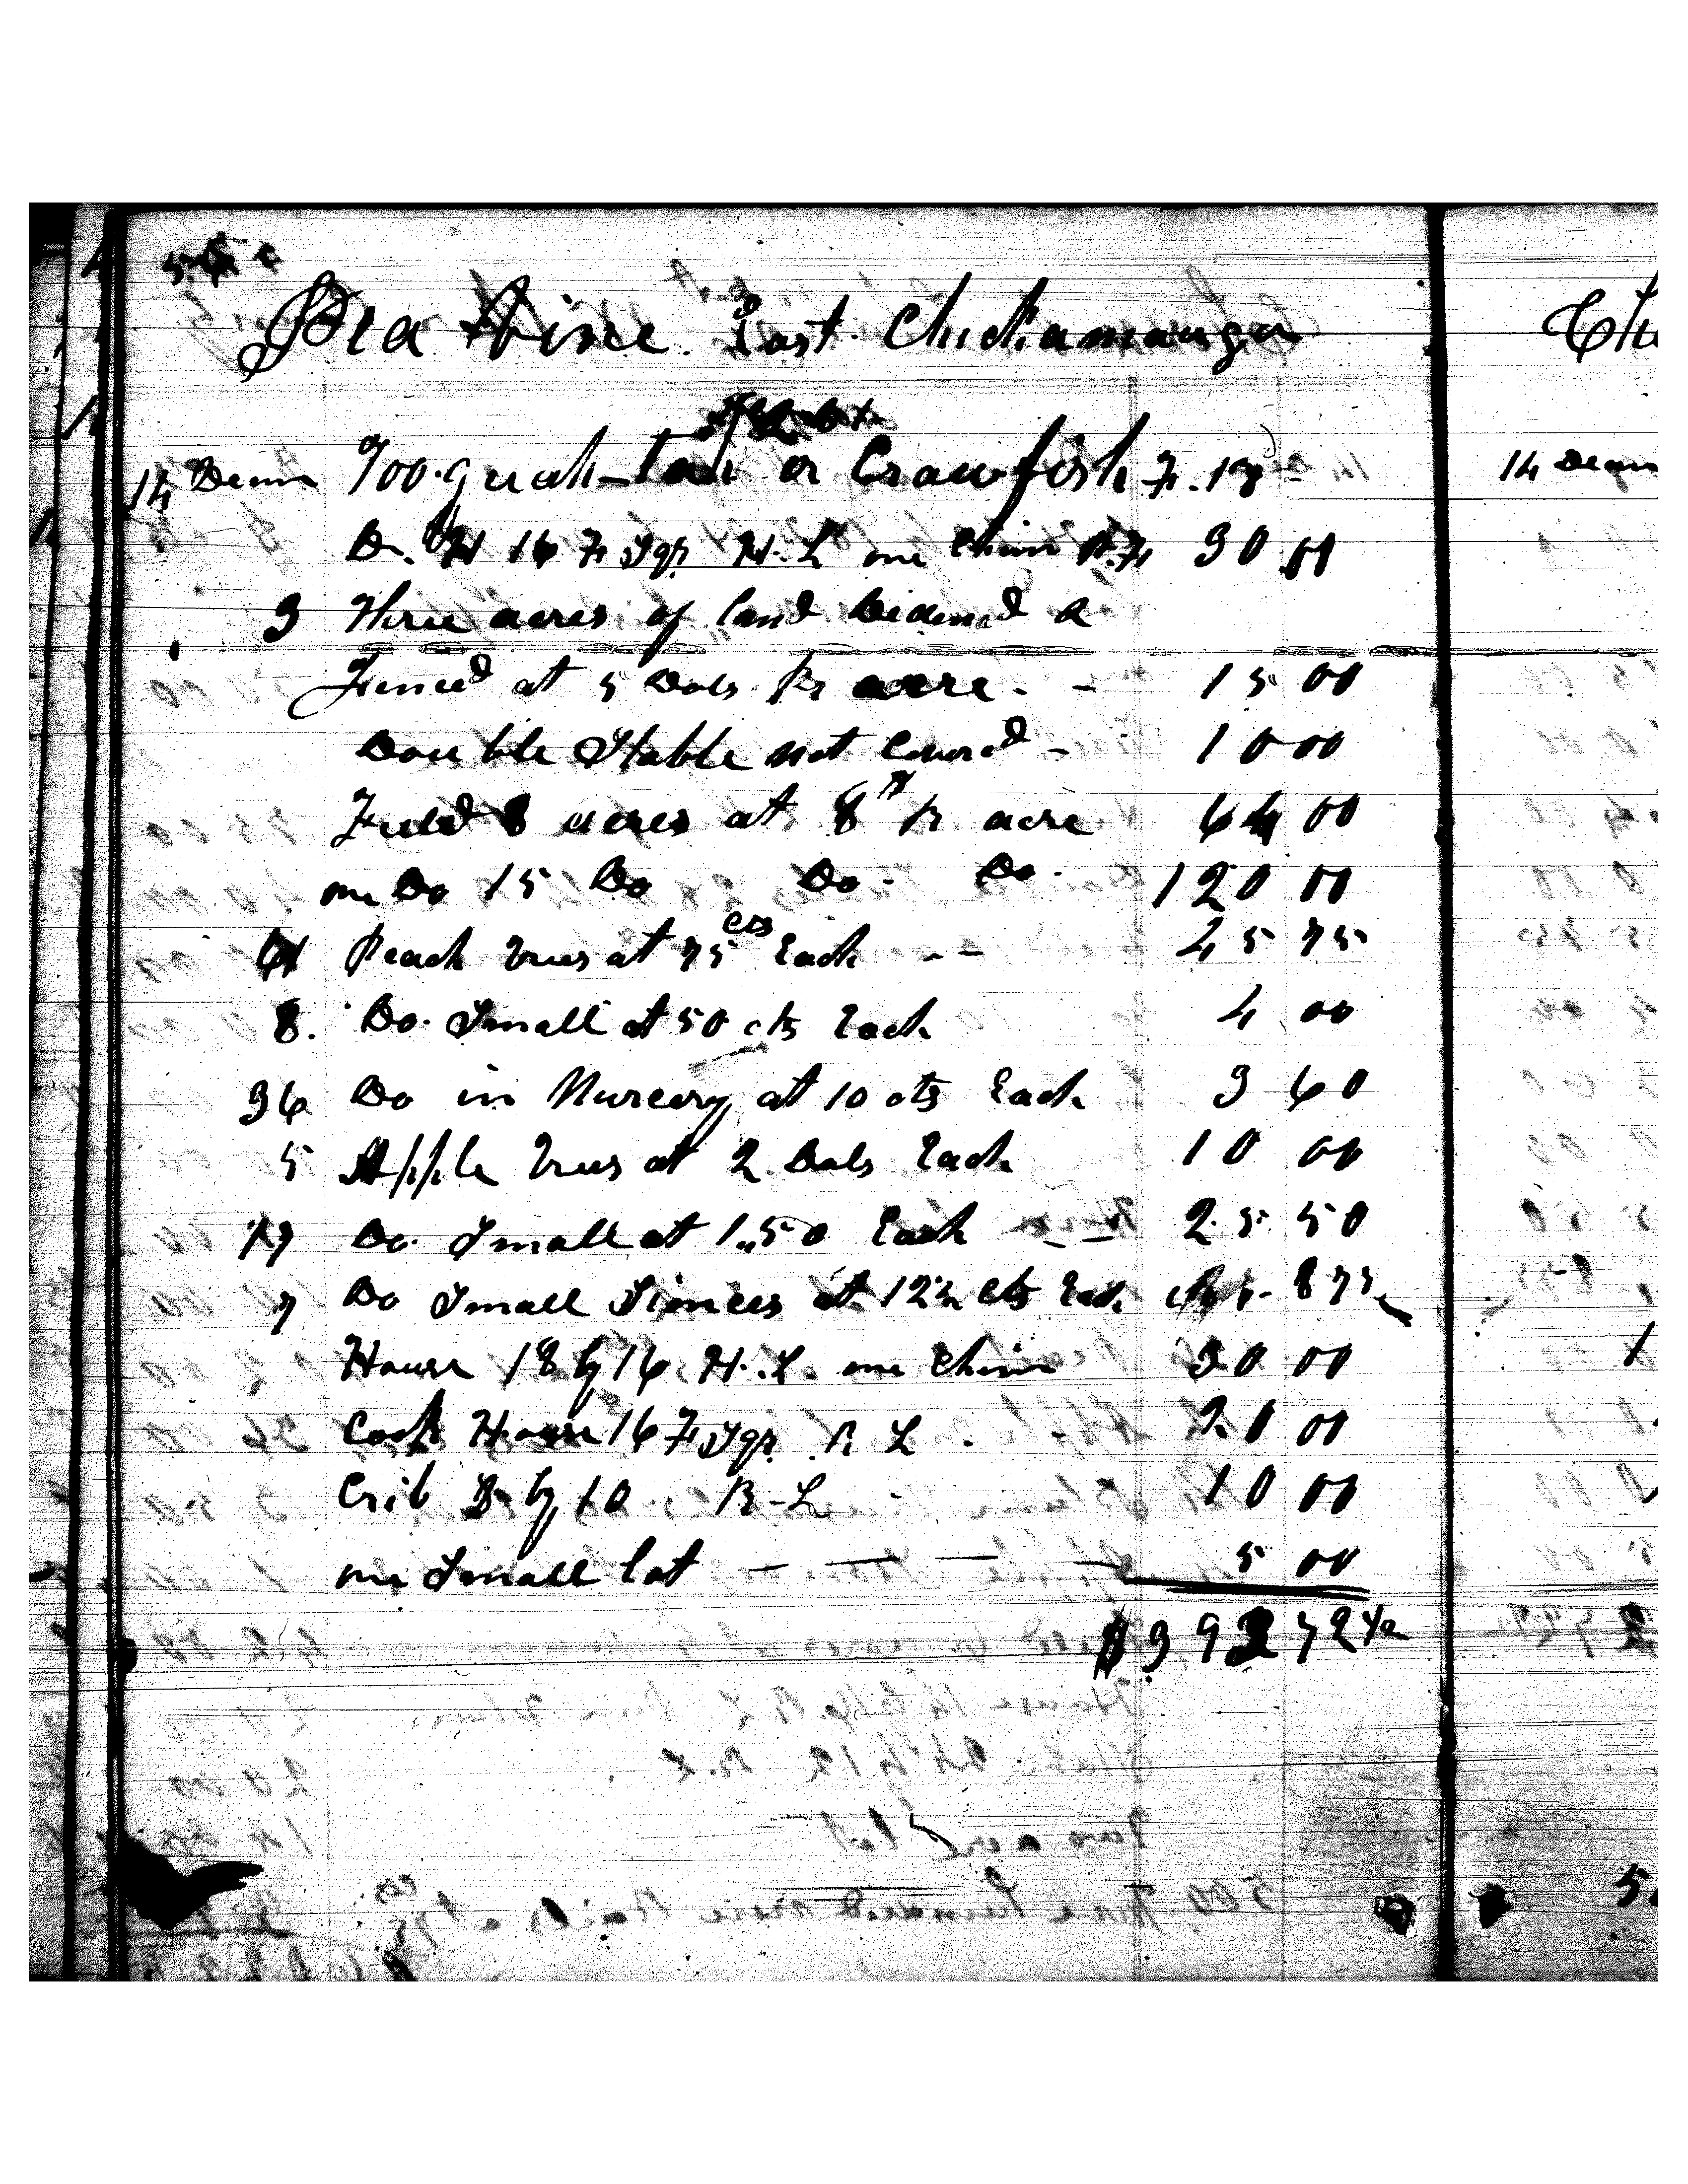 Pea Vine East Chickamauga
14 Decem Too-quah-tah or Crawfish F. 13
D. H 16 Ft Sqr H. L one Chim P. F. 30 00
3 Three acres of land Deaden'd &
Fenced at 5 Dols Pr acre - - 15 00
Double Stable not Cover'd - 10 00
Field 8 acres at 8 $ Pr acre 64 00
one Do 15 Do Do. Do. 120 00
Peach Trees at 75 cts Each - - 45 75
8. Do. Small at 50 cts Each 4 00
36 Do in Nurcery at 10 cts Each 3 60
5 Apple Trees at 2 Dols Each 10 00
17 Do. Small at 1.50 Each - - 25 50
7 Do Small Siences at 12½ cts Each 87½
House 18 by 16 H. L. one Chim 30 00
Cook House 16 Ft Sqr R L . - 20 00
Crib 8 by 10 R-L - 10 00
one Small lot - - - - 5 00
$ 393 72½